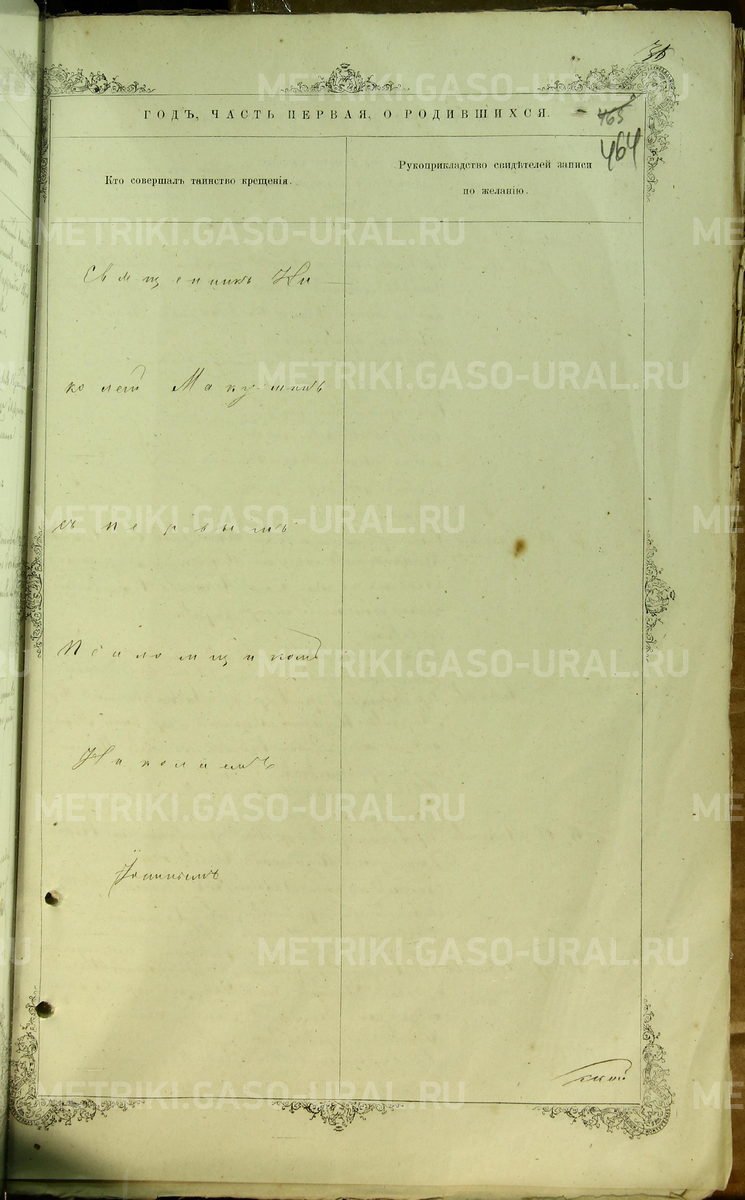 36
ГОДЪ, ЧАСТЬ ПЕРВАЯ, О РОДИВШИХСЯ.
465
464
Кто совершалъ таинство крещенія.
Рукоприкладство свидѣтелей записи
по желанію.
Священникъ Ни-
колай Макушинъ
съ первымъ
псаломщикомъ
Николаемъ
METRIKI.GASO-URAL.RU